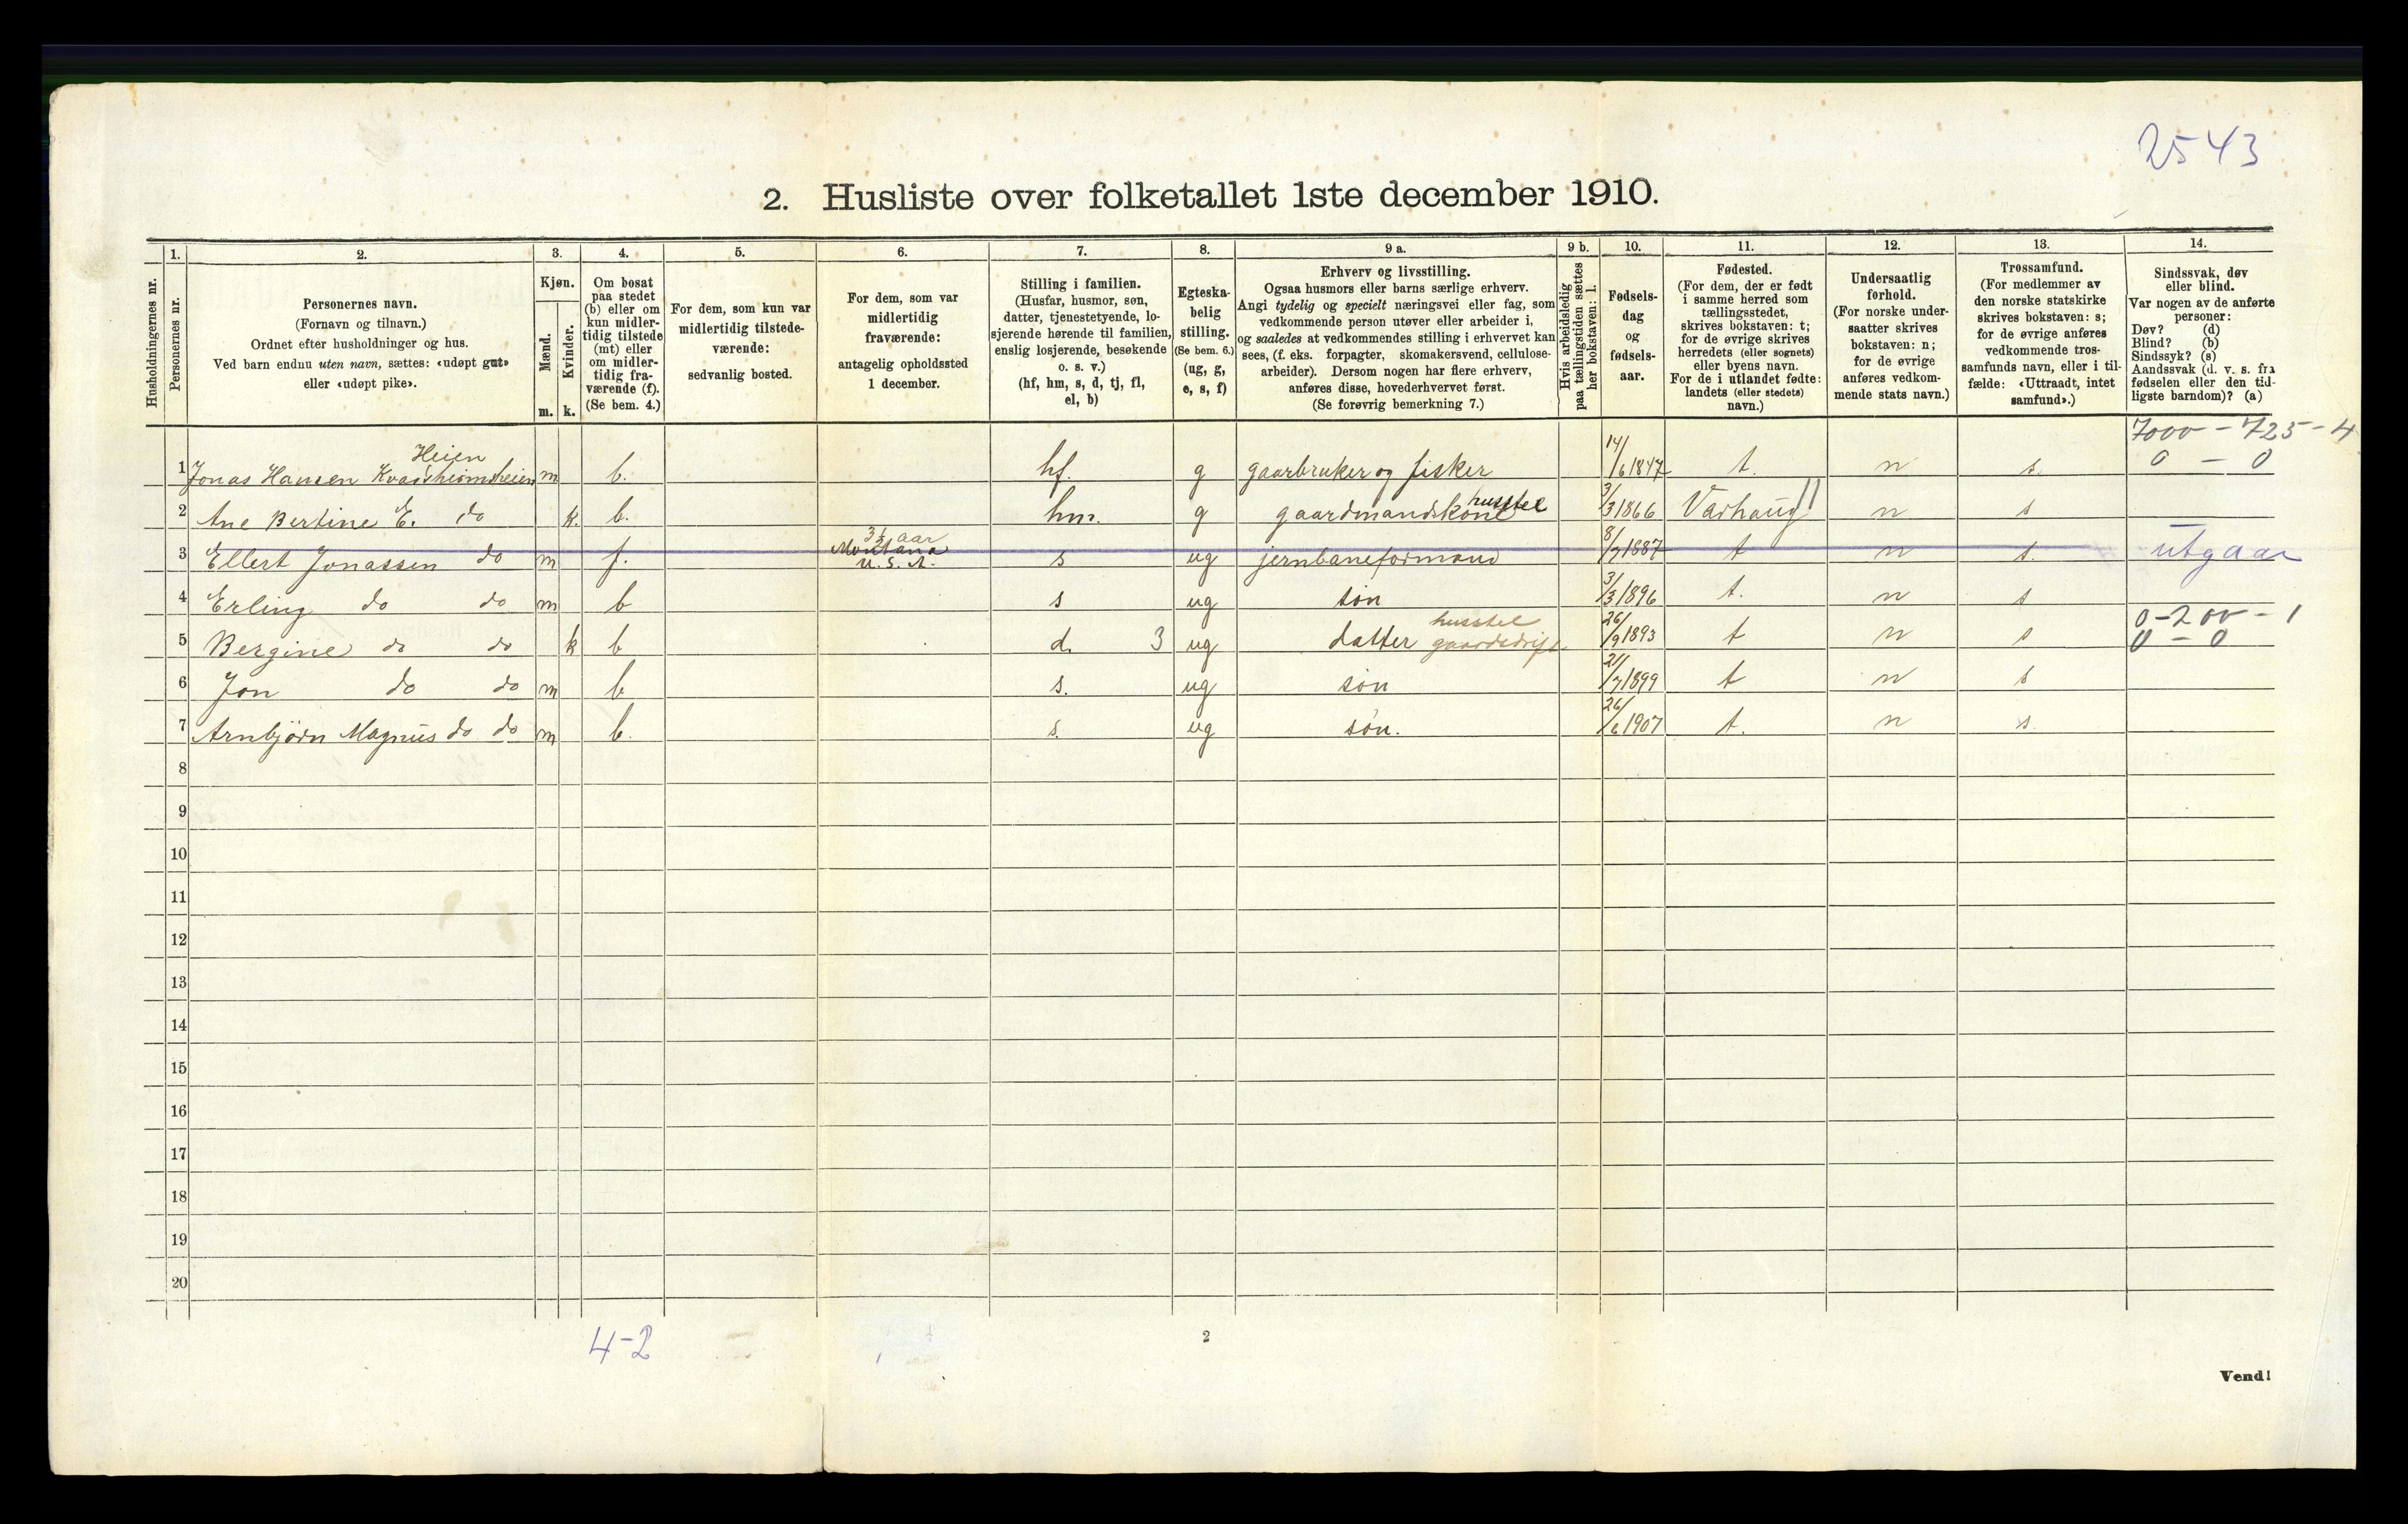 2543
2. Husliste over folketallet 1ste december 1910.
1. 2. 3. 4. 5. 6. 7. 8. 9 a. 9 b. 10. 11. 12. 13. 14.
Husholdningernes nr.
Personernes nr.
Personernes navn.
(Fornavn og tilnavn.)
Ordnet efter husholdninger og hus.
Ved barn endnu uten navn, sættes: «udøpt gut»
eller «udøpt pike».
Kjøn.
Mænd.
Kvinder.
m. k.
Om bosat
paa stedet
(b) eller om
kun midler-
tidig tilstede
(mt) eller
om midler-
tidig fra-
værende (f).
(Se bem. 4.)
For dem, som kun var
midlertidig tilstede-
værende:
sedvanlig bosted.
For dem, som var
midlertidig
fraværende:
antagelig opholdssted
1 december.
Stilling i familien.
(Husfar, husmor, søn,
datter, tjenestetyende, lo-
sjerende hørende til familien,
enslig losjerende, besøkende
o. s. v.)
(hf, hm, s, d, tj, fl,
el, b)
Egteska-
belig
stilling.
(Se bem. 6.)
(ug, g,
e, s, f)
Erhverv og livsstilling.
Ogsaa husmors eller barns særlige erhverv.
Angi tydelig og specielt næringsvei eller fag, som
vedkommende person utøver eller arbeider i,
og saaledes at vedkommendes stilling i erhvervet kan
sees, (f. eks. forpagter, skomakersvend, cellulose-
arbeider). Dersom nogen har flere erhverv,
anføres disse, hovederhvervet først.
(Se forøvrig bemerkning 7.)
Hvis arbeidsledig
paa tællingstiden sættes
her bokstaven: l.
Fødsels-
dag
og
fødsels-
aar.
Fødested.
(For dem, der er født
i samme herred som
tællingsstedet,
skrives bokstaven: t;
for de øvrige skrives
herredets (eller sognets)
eller byens navn.
For de i utlandet fødte:
landets (eller stedets)
navn.)
Undersaatlig
forhold.
(For norske under-
saatter skrives
bokstaven: n;
for de øvrige
anføres vedkom-
mende stats navn.)
Trossamfund.
(For medlemmer av
den norske statskirke
skrives bokstaven: s;
for de øvrige anføres
vedkommende tros-
samfunds navn, eller i til-
fælde: «Uttraadt, intet
samfund».)
Sindssvak, døv
eller blind.
Var nogen av de anførte
personer:
Døv? (d)
Blind? (b)
Sindssyk? (s)
Aandssvak (d. v. s. fra
fødselen eller den tid-
ligste barndom)? (a)
Heien 7000 - 725 - 4
1 Jonas Hansen Kvasheimsheien m b. hf. g gaarbruker og fisker 14/6 1847 t. n s. 0 - 0
husstel
2 Ane Bertine E. do k. b. hm. g gaardmandskone 3/3 1866 Varhaug n s
3½ aar
3 Ellert Jonassen do m f. Montana s ug jernbaneformand 8/7 1887 t n s. utgaar
U. S. A.
4 Erling do do m b s ug søn 3/3 1896 t. n s
husstel 0-200 - 1
5 Bergine do do k b d. 3 ug datter gaardsdrift 26/9 1893 t n s 0 - 0
6 Jon do do m b s. ug søn 21/7 1899 t n s
7 Arnbjørn Magnus do do m b. s. ug søn. 26/6 1907 t. n s.
8
9
10
11
12
13
14
15
16
17
18
19
20
4-2
2
Vend!